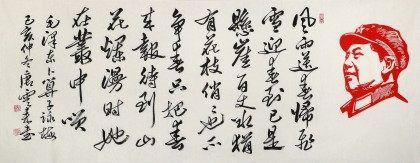 风雨送春归飞
雪迎春到已是
悬崖百丈冰犹
有花枝俏俏也不
争春只把春
来报待到山
花烂漫时她
在丛中笑
毛泽东卜算子咏梅
己亥仲冬唐云来书